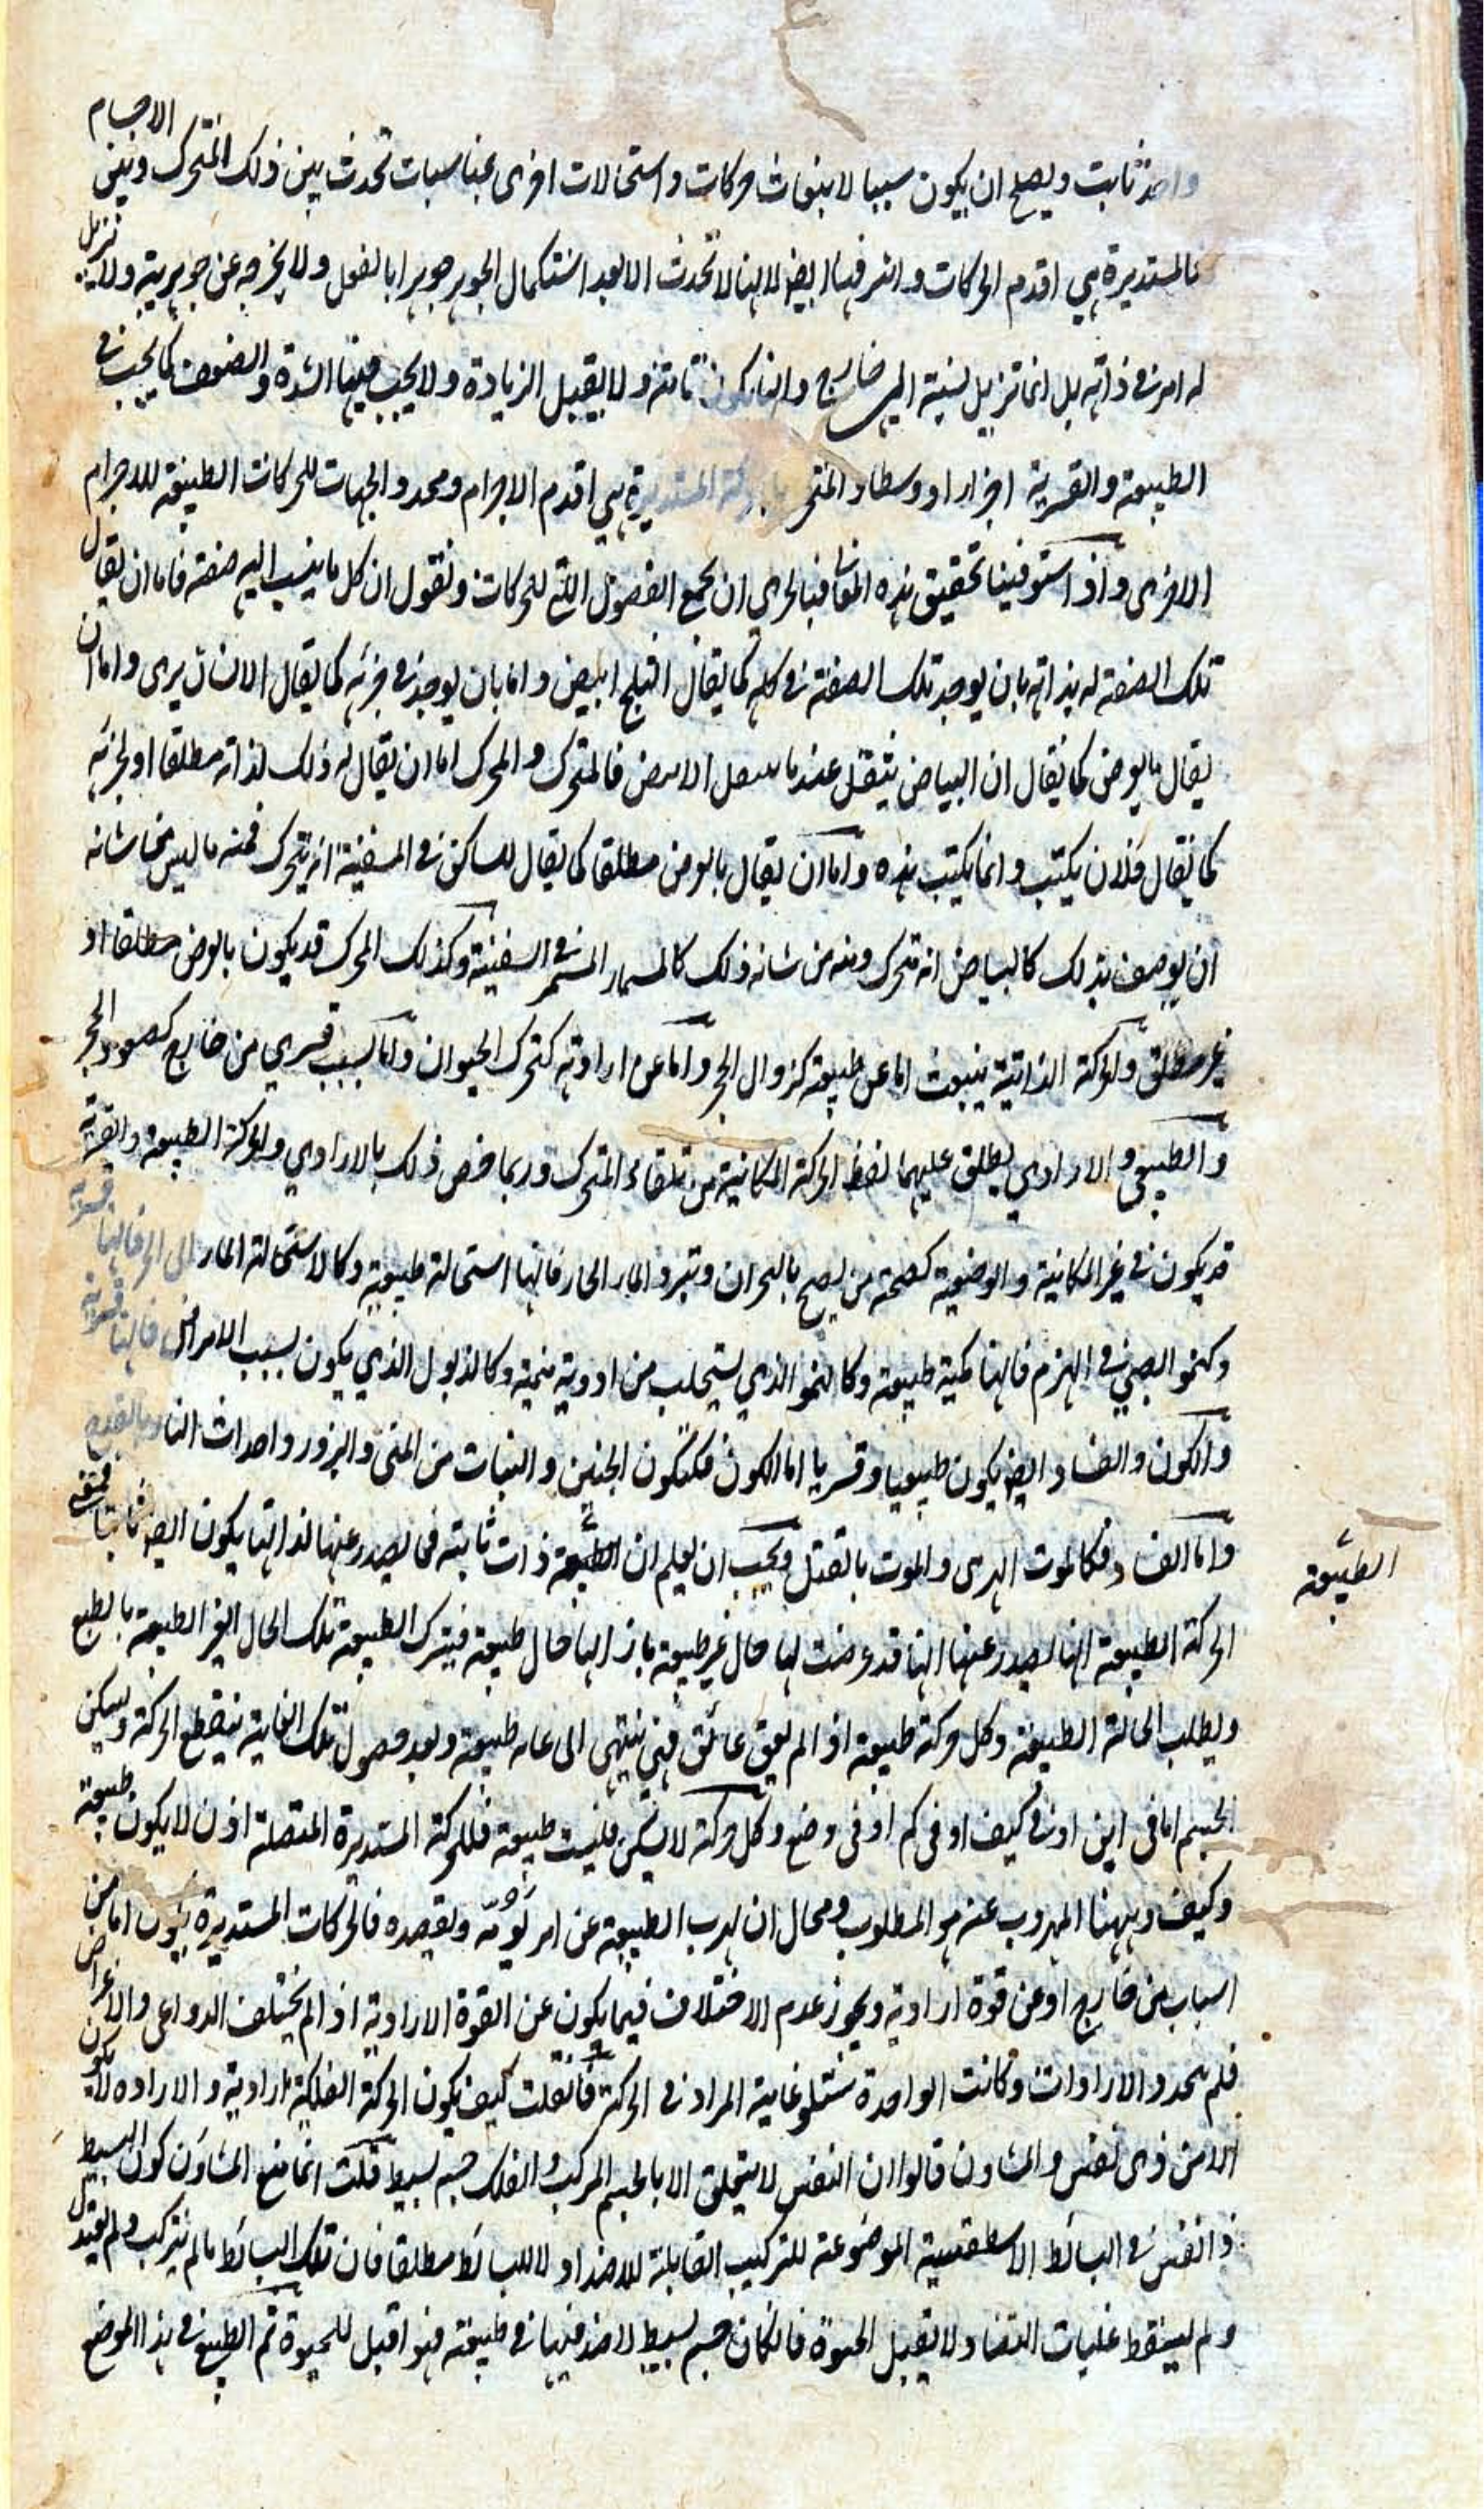 واحد ثابت ويصلح ان يكون سببا لانبعاث حركات واستحالات اخرى بمناسبات تحدث بين ذلك المتحرك وبين الاجسام
فالمستديرة هي اقدم الحركات واشرفها ايضا لانها لا تحدث الا بعد استكمال الجوهر جوهرا بالفعل ولا يخرجه عن جوهريته ولا يزيل
له امر في ذاته بل انما تزيل نسبته الى خارج وانها تكون ثابتة ولا يقبل الزيادة ولا يجب فيها الشدة والضعف كما يجب في
الطبيعة والقسرية اخرا او وسطا والمتحرك بالحركة المستديرة هي اقدم الاجرام ومحدد الجهات للحركات الطبيعة للاجرام
الاخرى واذ استوفينا تحقيق هذه المعاني فبالحري ان نجمع الفصول التي للحركات ونقول ان كل ما ينسب اليه صفة فاما ان يقال
تلك الصفة له بذاته بان يوجد تلك الصفة في كله كما يقال الثلج ابيض واما بان يوجد في جزئه كما يقال الانسان يرى واما ان
يقال بالعرض كما يقال ان البياض ينتقل عندما ينتقل الابيض فالمتحرك والمحرك اما ان يقال له ذلك لذاته مطلقا او لجزئه
كما يقال فلان يكتب وانما يكتب يده واما ان يقال بالعرض مطلقا كما يقال للساكن في السفينة انه يتحرك فمنه ما ليس من شانه
ان يوصف بذلك كالبياض انه تحرك ومنه من شانه ذلك كالمسمار المسمر في السفينة وكذلك المحرك قد يكون بالعرض مطلقا او
غير مطلق والحركة الذاتية ينبعث اما عن طبيعة كنزول الحجر واما عن ارادته كتحرك الحيوان واما بسبب قسري من خارج كصعود الحجر
والطبيعي والارادي يطلق عليهما لفظ الحركة الكائنة من تلقاء المتحرك وربما خص ذلك بالارادي والحركة الطبيعة والقسرية
قد يكون في غير المكانية والوضعية كصحة من يصح بالبحران وتبرد الماء الحار فانها استحالة طبيعية وكالاستحالة الماء الى الحر فانها قسرية
وكنمو الصبي في الهرم فانها كمية طبيعة وكالنمو الذي يستجلب من ادوية منمية وكالذبول الذي يكون بسبب الامراض فانها قسرية
والكون والفساد ايضا يكون طبيعيا وقسريا اما الكون فكتكون الجنين والنبات من المنى والبزور واحداث النار بالقدح
واما الفساد فكالموت الهرمي والموت بالقتل ويجب ان يعلم ان الطبيعة ذات ثابتة فما يصدر عنها لذاتها يكون ايضا ثابتا فمقتضى
الطبيعة
الحركة الطبيعة انها يصدر عنها انها قد عرضت لها حال غير طبيعة بازائها حال طبيعة فيترك الطبيعة تلك الحال الغير الطبيعة بالطبع
ويطلب الحالة الطبيعة وكل حركة طبيعة اذا لم يعق عائق فهي ينتهي الى غاية طبيعة وبعد حصول تلك الغاية ينقطع الحركة ويسكن
الجسم اما في اين او في كيف او في كم او في وضع وكل حركة لا تسكن فليست طبيعة فللحركة المستديرة المتصلة اذن لا يكون طبيعة
وكيف وههنا المهروب عنه هو المطلوب ومحال ان يهرب الطبيعة عن امر تؤمه ويقصده فالحركات المستديرة يكون اما من
اسباب من خارج او عن قوة ارادية ويجوز عدم الاختلاف فيما يكون عن القوة الارادية اذا لم يختلف الدواعى والاغراض
فلم يتجدد الارادات وكانت الواحدة ستتلو غاية المراد في الحركة فان قلت كيف يكون الحركة الفلكية ارادية والارادة لا يكون
الا من ذى نفس والمشاون قالوا ان النفس لا يتعلق الا بالجسم المركب والفلك جسم بسيط قلت انما منع المشاون كون البسيط
ذا نفس في البسائط الاسطقسية الموضوعة للتركيب القابلة للاضداد لا للبسائط مطلقا فان تلك البسائط ما لم يتركب ولم يعتدل
ولم يسقط غلبات التضاد لا تقبل الحيوة فان كان جسم بسيط لا ضد فيها في طبيعته فهو اقبل للحيوة ثم الطبيع في هذا الموضع